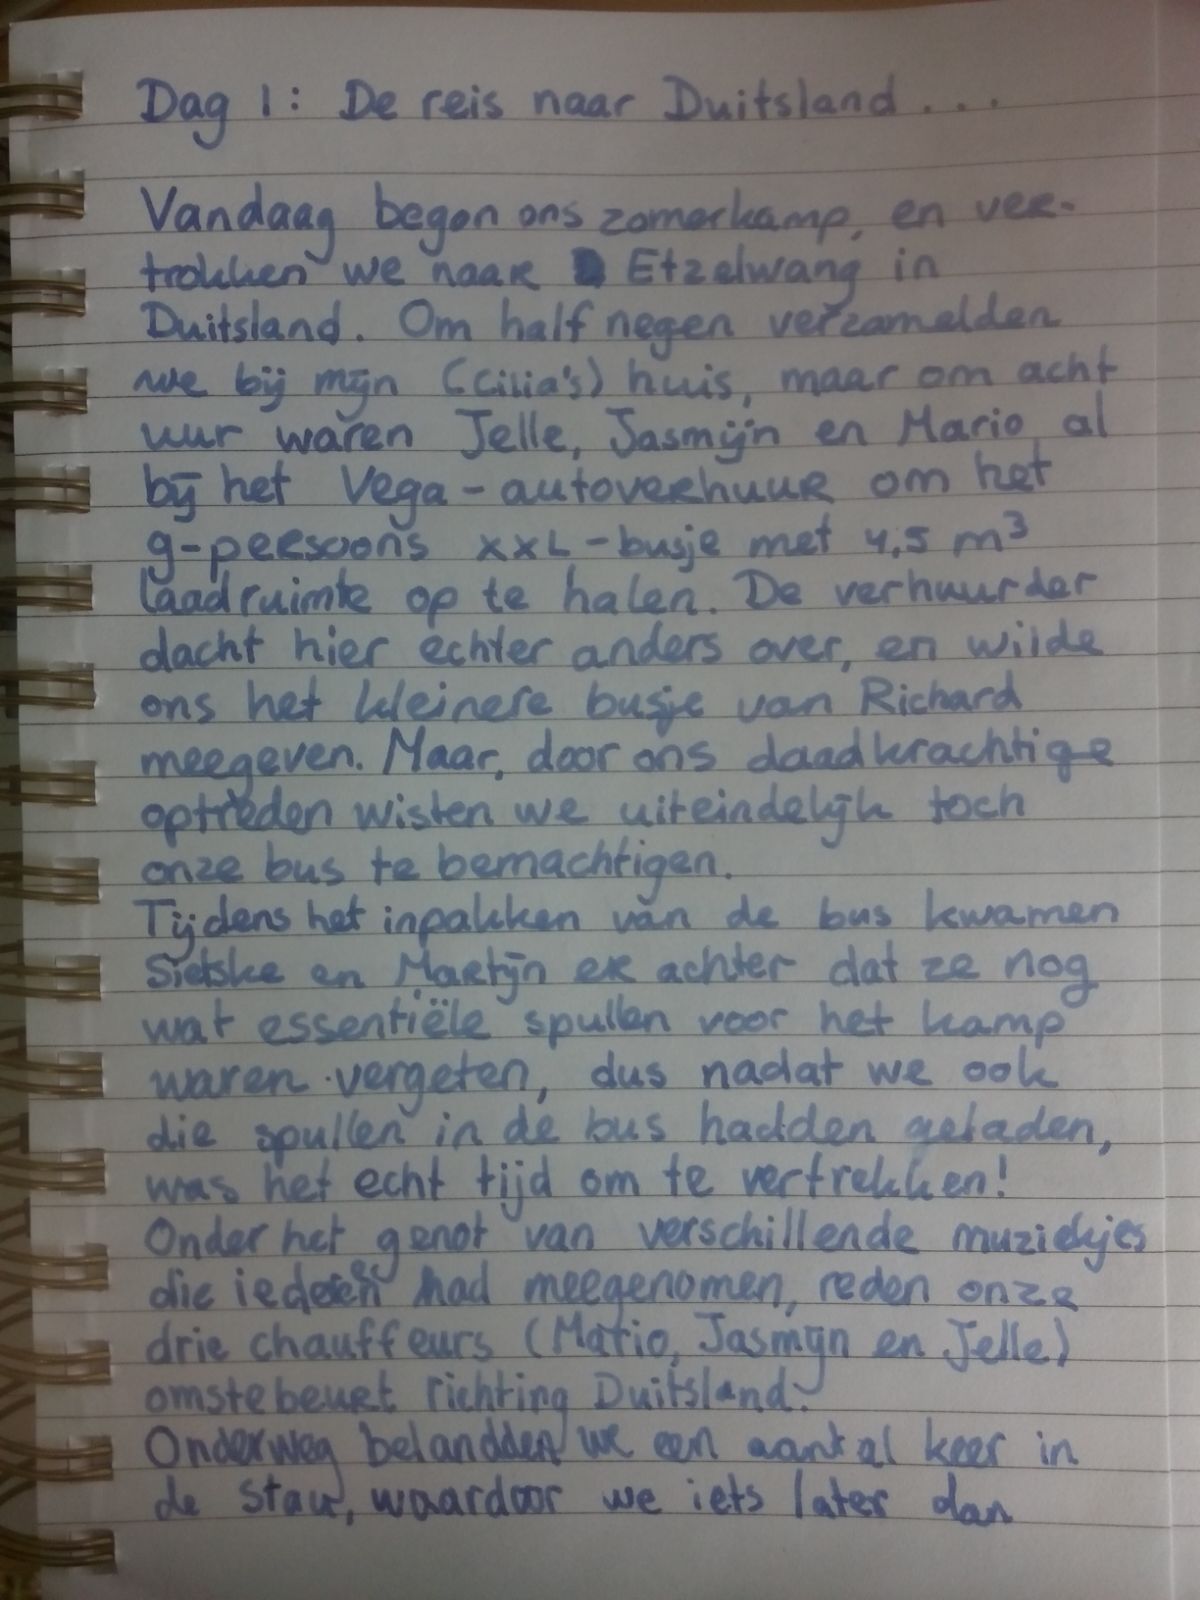 Dag 1: De reis naar Duitsland...
Vandaag begon ons zomerkamp, en ver-
trokken we naar Etzelwang in
Duitsland. Om half negen verzamelden
we bij mijn (Cilia's) huis, maar om acht
uur waren Jelle, Jasmijn en Mario al
bij het Vega-autoverhuur om het
9-persoons XXL-busje met 4,5 m³
laadruimte op te halen. De verhuurder
dacht hier echter anders over, en wilde
ons het kleinere busje van Richard
meegeven. Maar, door ons daadkrachtige
optreden wisten we uiteindelijk toch
onze bus te bemachtigen.
Tijdens het inpakken van de bus kwamen
Sietske en Martijn er achter dat ze nog
wat essentiële spullen voor het kamp
waren vergeten, dus nadat we ook
die spullen in de bus hadden geladen,
was het echt tijd om te vertrekken!
Onder het genot van verschillende muziekjes
die iedereen had meegenomen, reden onze
drie chauffeurs (Mario, Jasmijn en Jelle)
omstebeurt richting Duitsland.
Onderweg belandden we een aantal keer in
de Stau, waardoor we iets later dan